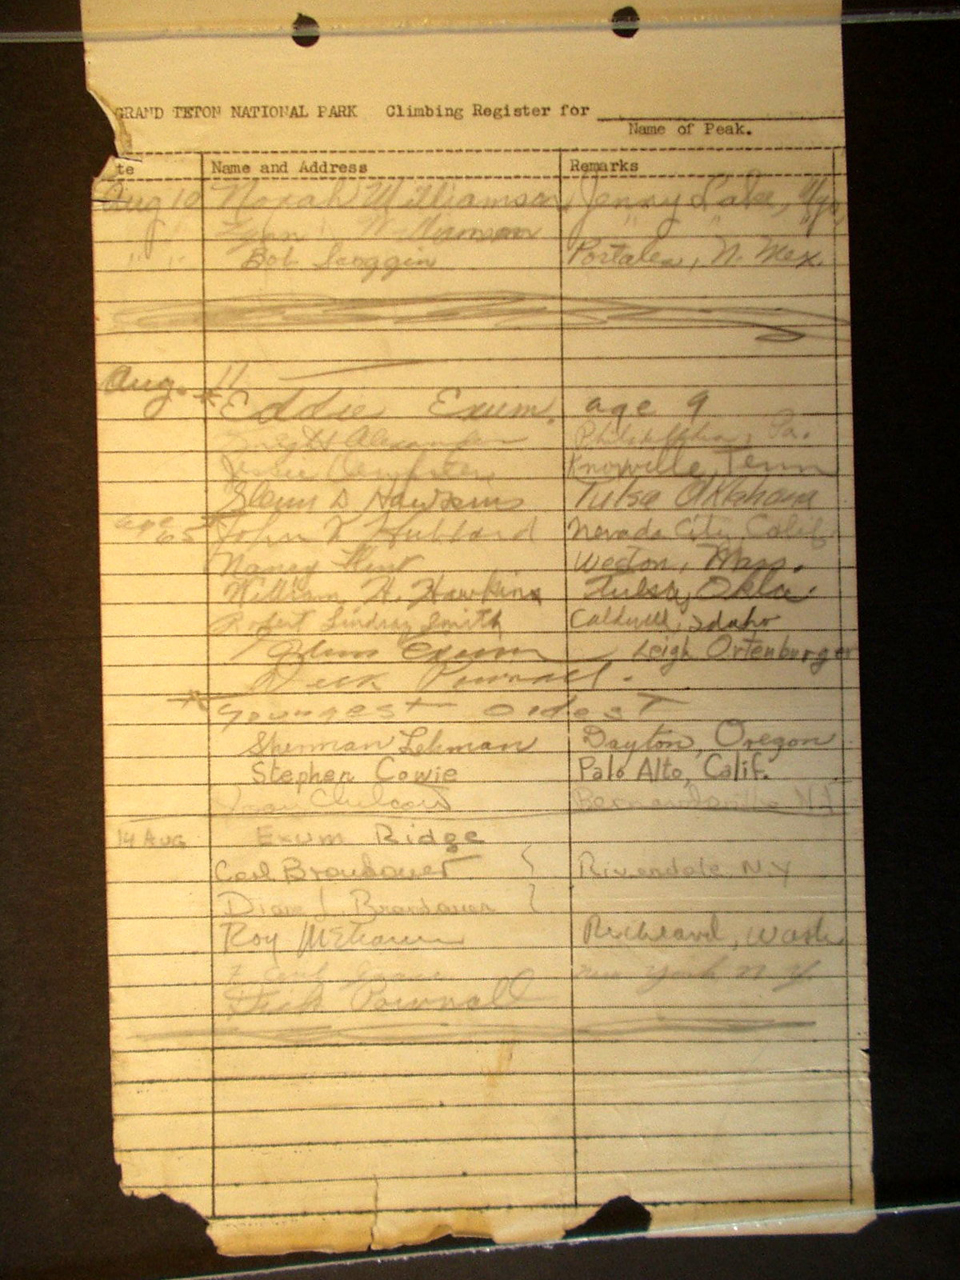 GRAND TETON NATIONAL PARK Climbing Register for
Name of Peak.
te Name and Address Remarks
Aug 10 Norah Williamson Jenny Lake, Wyo.
" " Williamson " "
" " Bob Scoggin Portales, N. Mex.
Aug. 11
* Eddie Exum, age 9
Alexander Philadelphia, Pa.
Jessie Knoxville, Tenn
Glenn D Hawkins Tulsa Oklahoma
age 65 * John Hubbard Nevada City, Calif.
Nancy Weston, Mass.
William H. Hawkins Tulsa, Okla.
Robert Lindsay Smith Caldwell, Idaho
Glenn Exum Leigh Ortenburger
Dick Pownall.
* Youngest oldest
Sherman Lehman Dayton, Oregon
Stephen Cowie Palo Alto, Calif.
Joan Bernardsville NJ
14 AUG Exum Ridge
Carl Brandauer { Riverdale, NY
Diane L. Brandauer {
Roy Richland, Wash
New York N.Y.
Dick Pownall